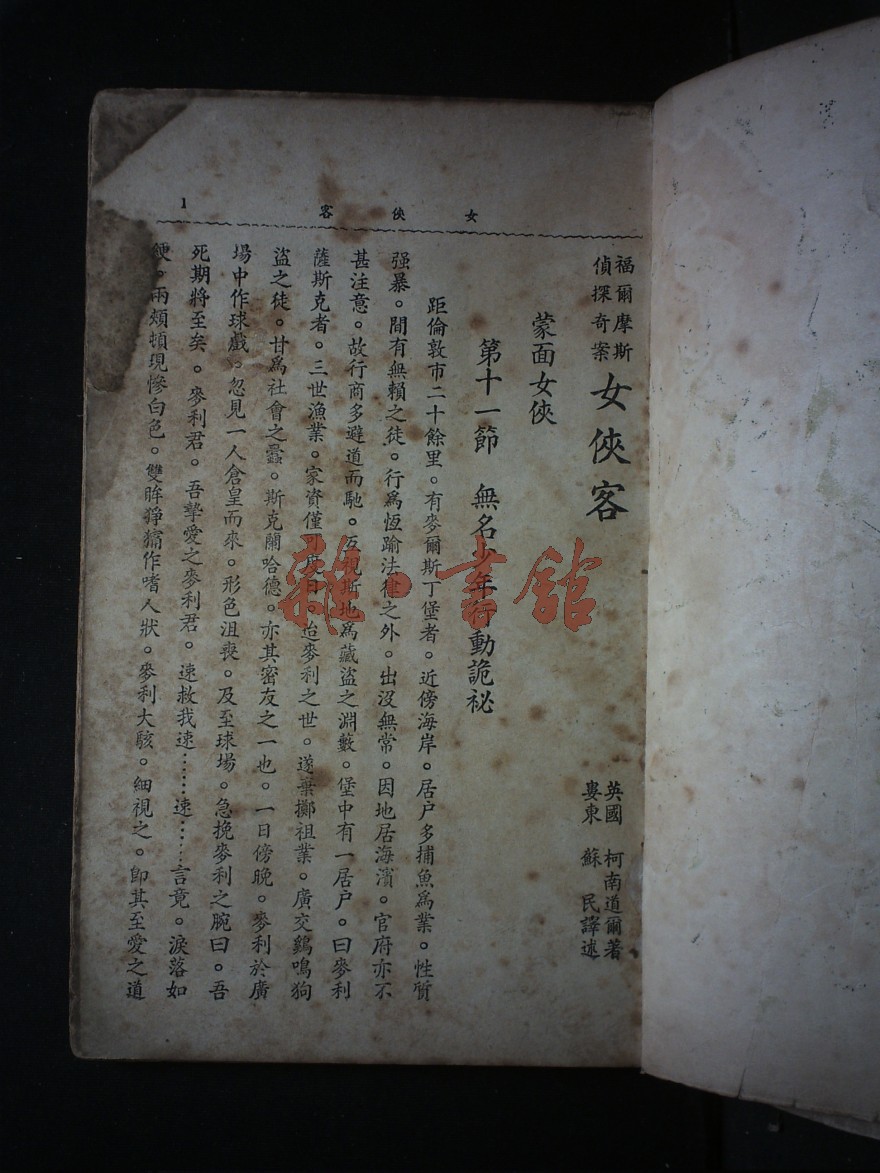 女俠客
1
福爾摩斯
偵探奇案
女俠客
英國 柯南道爾著
婁東 蘇民譯述
蒙面女俠
第十一節 無名少年 動詭祕
距倫敦市二十餘里。有麥爾斯丁堡者。近傍海岸。居户多捕魚爲業。性質
强暴。間有無賴之徒。行爲恆踰法律之外。出沒無常。因地居海濱。官府亦不
甚注意。故行商多避道而馳。互視斯地爲藏盜之淵藪。堡中有一居户。曰麥利
薩斯克者。三世漁業。家資僅可度日。迨麥利之世。遂棄擲祖業。廣交鷄鳴狗
盜之徒。甘爲社會之蠹。斯克蘭哈德。亦其密友之一也。一日傍晚。麥利於廣
場中作球戲。忽見一人倉皇而來。形色沮喪。及至球場。急挽麥利之腕曰。吾
死期將至矣。麥利君。吾摯愛之麥利君。速救我速……速……言竟。淚落如
綆。兩頰頓現慘白色。雙眸猙獰作嗜人狀。麥利大駭。細視之。卽其至愛之道
雜·書館